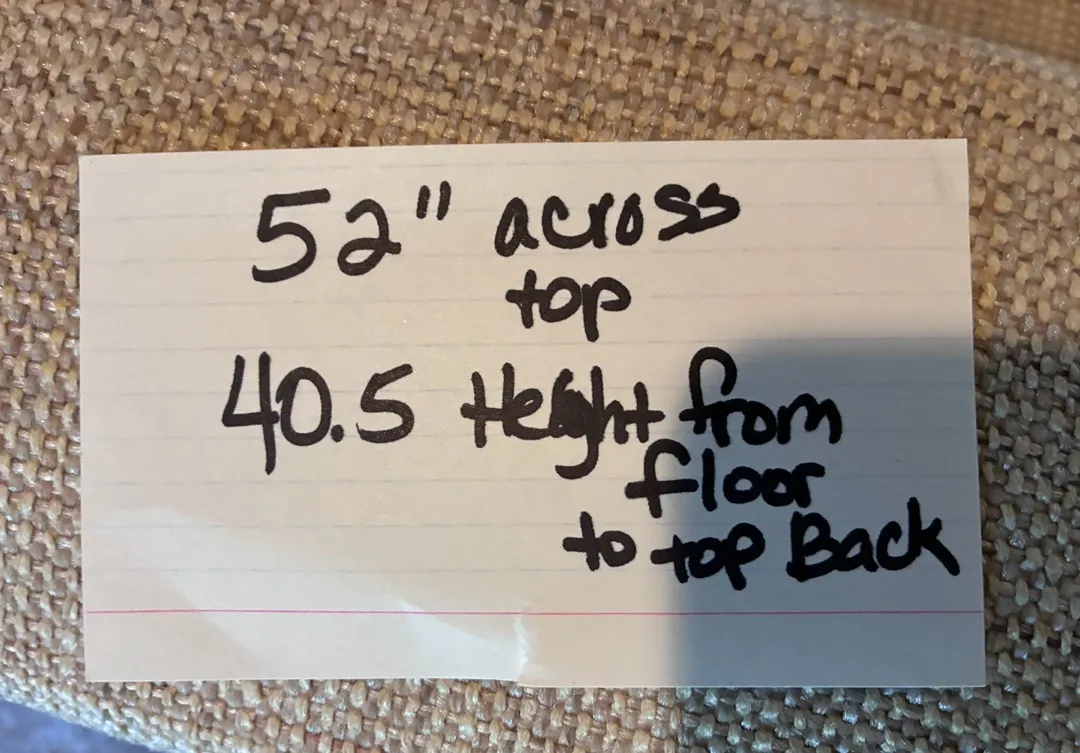 52" across
top
40.5 Height from
floor
to top Back